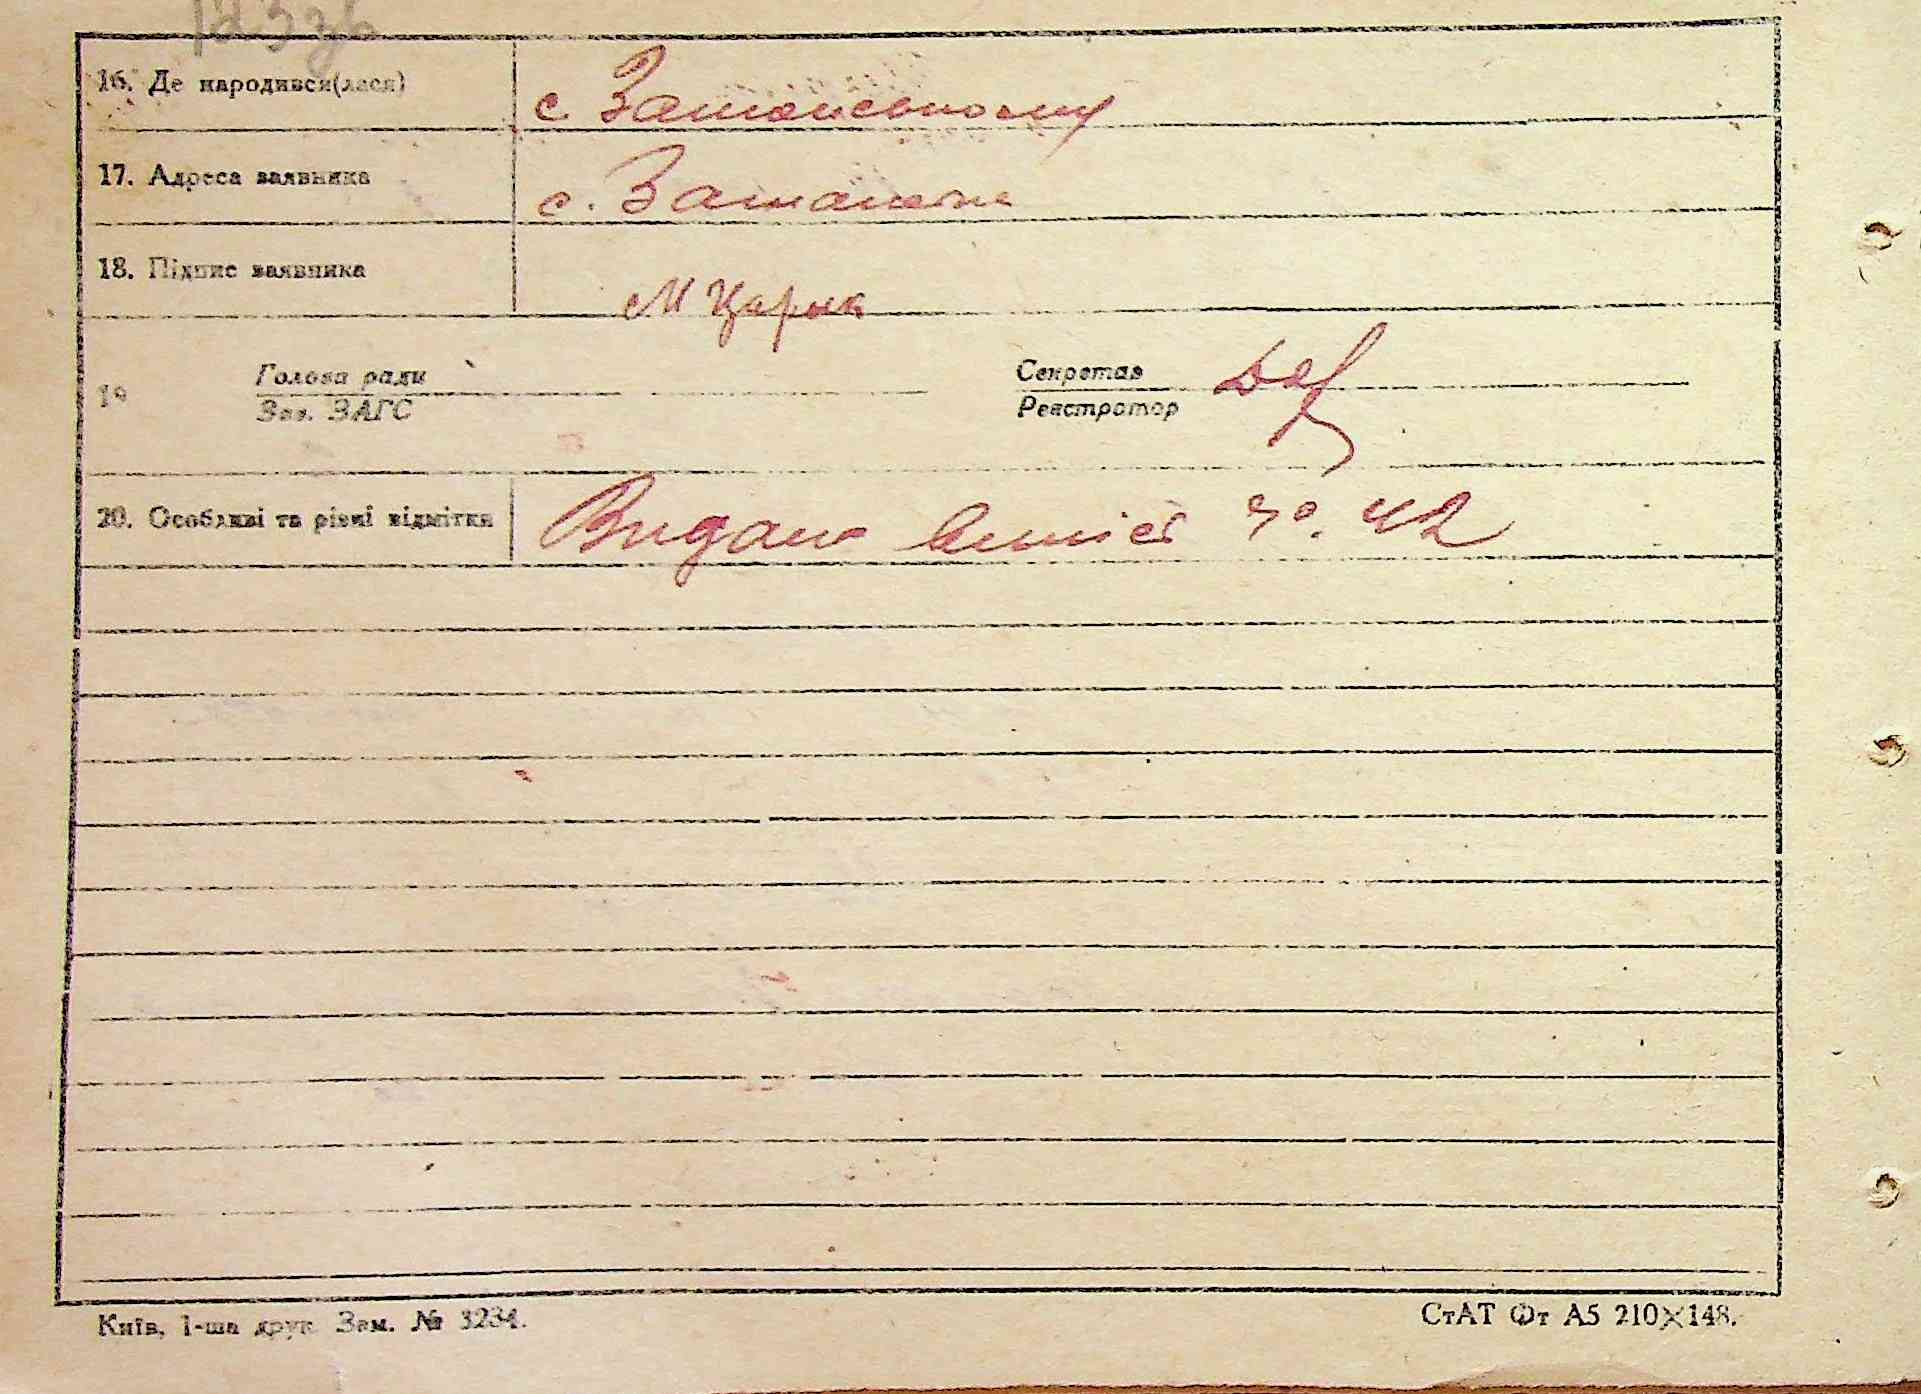 123 зв
16. Де народився(лася)
с.
17. Адреса заявника
с.
18. Підпис заявника
М Царик
19 Голова ради Секретар
Зав. ЗАГС Реєстратор
20. Особливі та різні відмітки
Видано 42
Київ, 1-ша друк. Зам. № 3234.
СтАТ Фт А5 210×148.